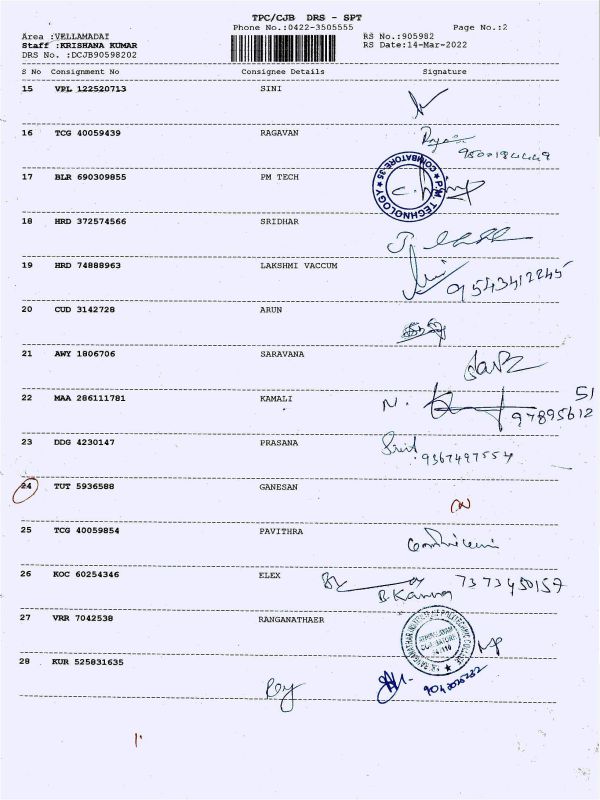 TPC/CJB DRS - SPT
Phone No.:0422-3505555 Page No.:2
Area :VELLAMADAI RS No.:905982
Staff :KRISHANA KUMAR RS Date:14-Mar-2022
DRS No. :DCJB90598202
S No Consignment No Consignee Details Signature
15 VPL 122520713 SINI
16 TCG 40059439 RAGAVAN
17 BLR 690309855 PM TECH
P.M. TECHNOLOGY ★ COIMBATORE 35 ★
18 HRD 372574566 SRIDHAR
19 HRD 74888963 LAKSHMI VACCUM
9543412245
20 CUD 3142728 ARUN
21 AWY 1806706 SARAVANA
22 MAA 286111781 KAMALI N. 51
97895612
23 DDG 4230147 PRASANA
9367497554
24 TUT 5936588 GANESAN
25 TCG 40059854 PAVITHRA
26 KOC 60254346 ELEX 7373450157
B Kanna
27 VRR 7042538 RANGANATHAER
28 KUR 525831635